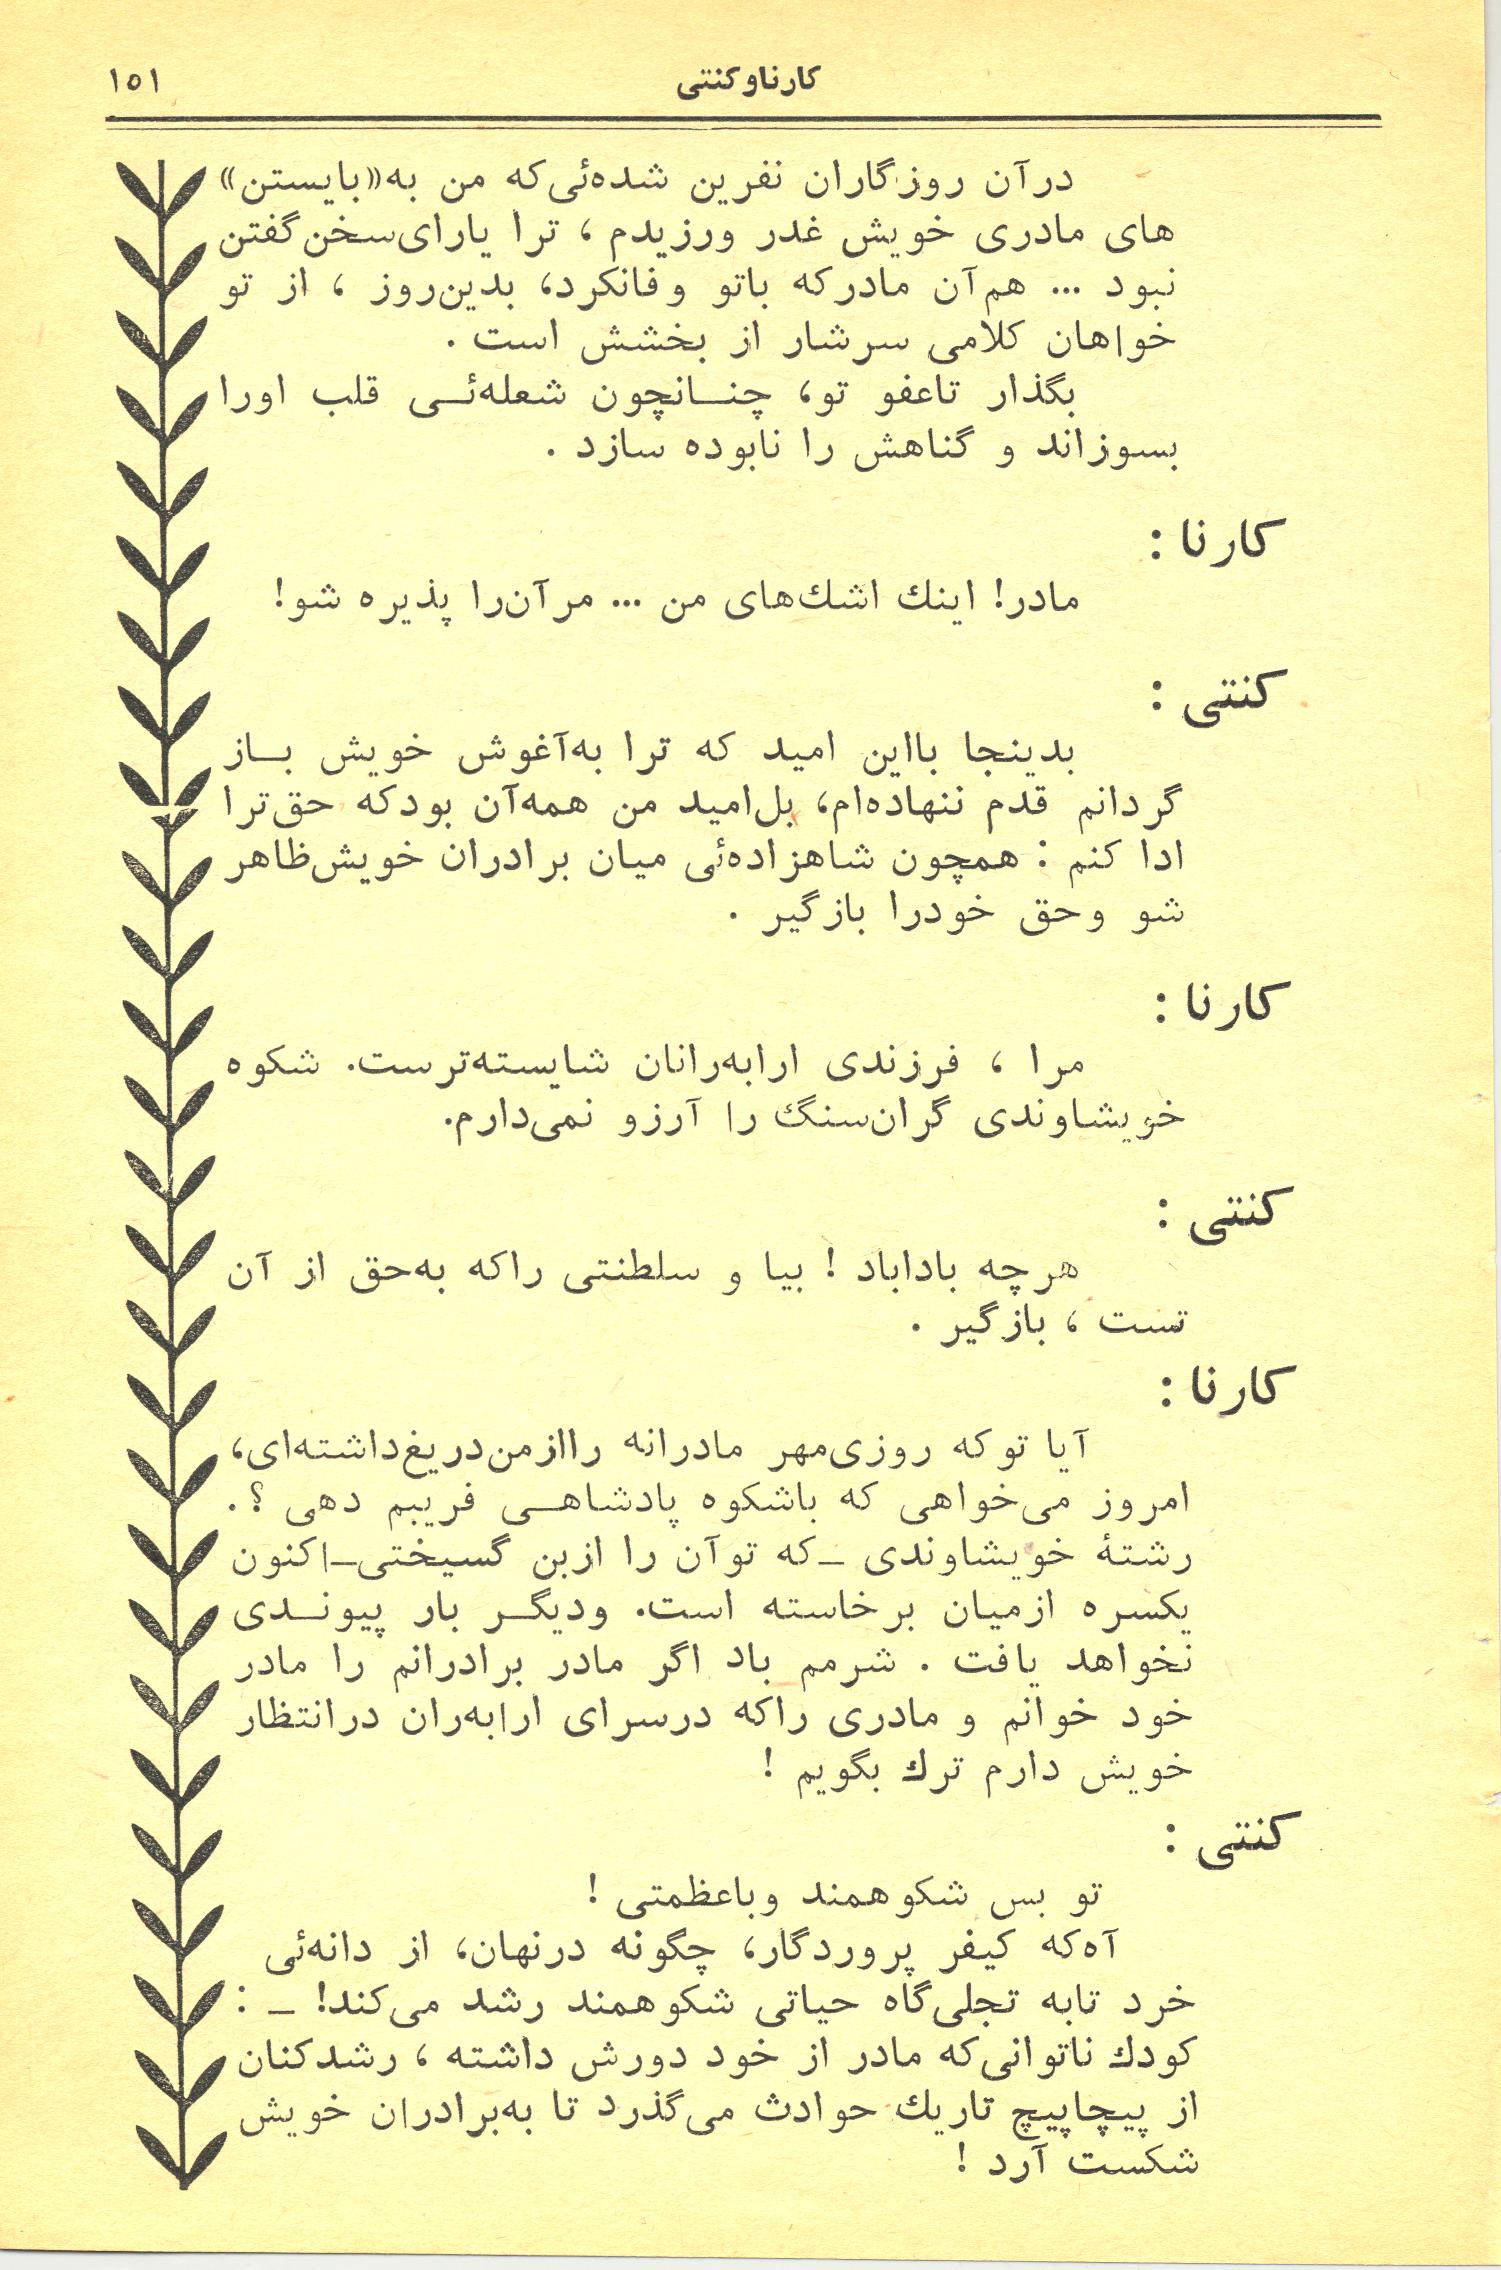 کارنا و کنتی
۱۵۱
درآن روزگاران نفرین شده‌ئی‌که من به«بایستن»
های مادری خویش غدر ورزیدم ، ترا یارای‌سخن‌گفتن
نبود ... هم‌آن مادرکه باتو وفانکرد، بدین‌روز ، از تو
خواهان کلامی سرشار از بخشش است .
بگذار تاعفو تو، چنـانچون شعله‌ئـی قلب اورا
بسوزاند و گناهش را نابوده سازد .
کارنا :
مادر! اینك اشك‌های من ... مرآن‌را پذیره شو!
کنتی :
بدینجا بااین امید که ترا به‌آغوش خویش بـاز
گردانم قدم ننهاده‌ام، بل‌امید من همه‌آن بودکه حق‌ترا
ادا کنم : همچون شاهزاده‌ئی میان برادران خویش‌ظاهر
شو وحق خودرا بازگیر .
کارنا :
مرا ، فرزندی ارابه‌رانان شایسته‌ترست. شکوه
خویشاوندی گران‌سنگ را آرزو نمی‌دارم.
کنتی :
هرچه باداباد ! بیا و سلطنتی راکه به‌حق از آن
تست ، بازگیر .
کارنا :
آیا توکه روزی‌مهر مادرانه راازمن‌دریغ‌داشته‌ای،
امروز می‌خواهی که باشکوه پادشاهـی فریبم دهی ؟.
رشتهٔ خویشاوندی ـ‌که توآن را ازبن گسیختی‌ـ‌اکنون
یکسره ازمیان برخاسته است. ودیگـر بار پیونـدی
نخواهد یافت . شرمم باد اگر مادر برادرانم را مادر
خود خوانم و مادری راکه درسرای ارابه‌ران درانتظار
خویش دارم ترك بگویم !
کنتی :
تو بس شکوهمند وباعظمتی !
آه‌که کیفر پروردگار، چگونه درنهان، از دانه‌ئی
خرد تابه تجلی‌گاه حیاتی شکوهمند رشد می‌کند! ـ :
کودك ناتوانی‌که مادر از خود دورش داشته ، رشدکنان
از پیچاپیچ تاریك حوادث می‌گذرد تا به‌برادران خویش
شکست آرد !